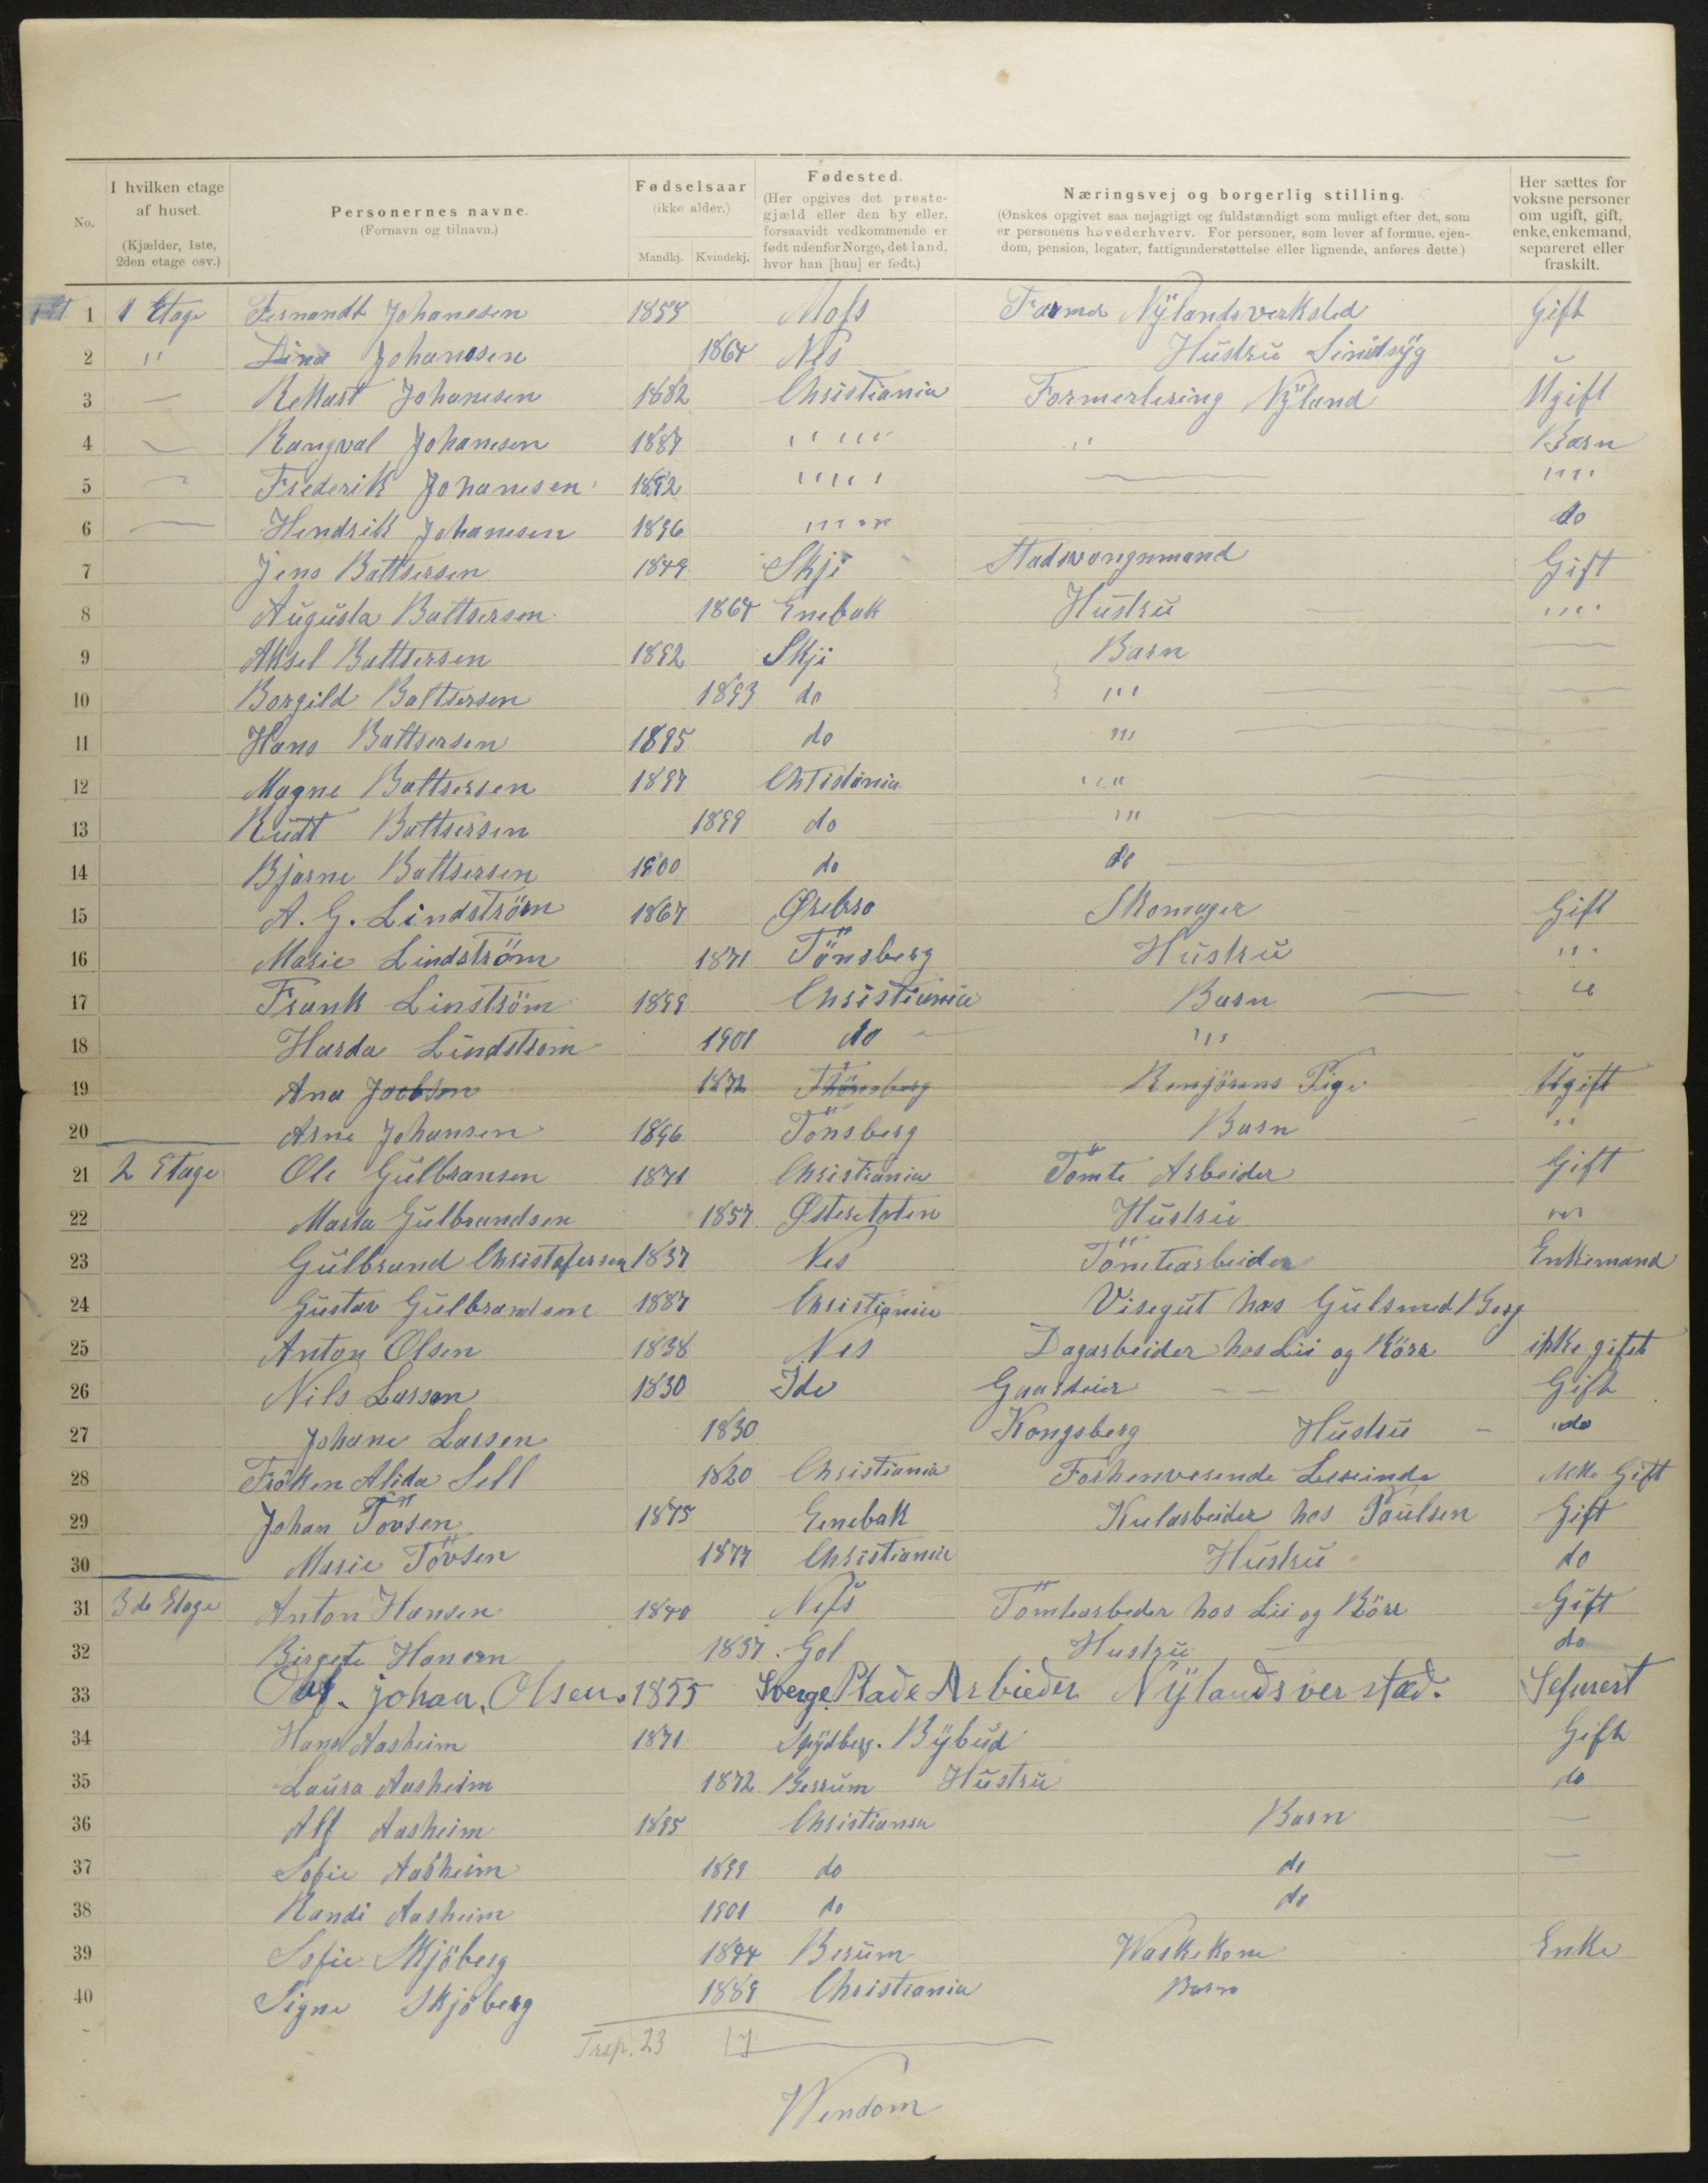 No.
I hvilken etage
af huset.
(Kjælder, 1ste,
2den etage osv.)
Personernes navne.
(Fornavn og tilnavn.)
Fødselsaar
(ikke alder.)
Mandkj. Kvindekj.
Fødested.
(Her opgives det preste-
gjæld eller den by eller,
forsaavidt vedkommende er
født udenfor Norge, det land,
hvor han [hun] er født.)
Næringsvej og borgerlig stilling.
(Ønskes opgivet saa nøjagtigt og fuldstændigt som muligt efter det, som
er personens hovederhverv. For personer, som lever af formue, ejen-
dom, pension, legater, fattigunderstøttelse eller lignende, anføres dette.)
Her sættes for
voksne personer
om ugift, gift,
enke, enkemand,
separeret eller
fraskilt.
1 1 Etage Fernandt Johanesen Mofs Nÿlandsverksted Gift
2 " Lina Johanssen 1864 Nes Hustru
3 — Johanesen 1882 Christiania Formerlering Nÿland Ugift
4 Rangval Johanesen 1887 " " " Barn
5 Frederik Johanesen 1892 " " — " "
6 — Hendrik Johanesen 1896 " " — do
7 Jens Battsersen 1849 Skji Stadsvongnmand Gift
8 Augusta Battsersen 1864 Enebak Hustru — " "
9 Aksel Battsersen 1892 Skji Barn —
10 Borgild Battsersen 1893 do " — —
11 Hans Battsersen 1895 do " —
12 Magne Battsersen 1897 Christiania " —
13 Rudt Battsersen 1899 do " —
14 Bjarne Battsersen 1900 do do —
15 A. G. Lindström 1867 Ørebro Skomager Gift
16 Marie Lindström 1871 Tönsberg Hustru "
17 Frank Linström 1899 Christiania Barn — "
18 Harda Lindstrom 1901 do "
19 Ana Jacobsen 1872 Renjörens Pige Ugift
20 Arne Johansen 1896 Tönsberg Barn "
21 2 Etage Ole Gulbransen 1871 Christiania Tömte Arbeider Gift
22 Marta Gulbrandsen 1857 Østeretoten Hustru "
23 Gulbrand Christofersen 1837 Nes Tömtearbeider Enkemand
24 Gustav Gulbrandsen 1887 Christiania Visegut hos Gulsmed Berg
25 Anton Olsen 1838 Nes Dagarbeider hos Lii og Körr ikke gifst
26 Nils Larsen 1830 Ide Gaardeier — Gift
27 Johane Larsen 1830 Kongsberg Hustru - do
28 Fröken Alida Sell 1820 Christiania Forhenverende Lereinde Gift
29 Johan Tövsen 1875 Enebak Kularbeider hos Paulsen Gift
30 Marie Tövsen 1877 Christiania Hustru do
31 3de Etage Anton Hansen 1840 Nefs Tömtearbeder hos Lii og Börr Gift
32 Birgete Hansen 1837 Gol Hustru — do
33 Johan. Olsen. 1855 Sverge. Plade Arbieder Nÿlandsverstad. Sepurest
34 Hans Aasheim 1871 Spÿdberg. Bÿbud Gift
35 Laura Aasheim 1872 Berrum Hustru do
36 Alf Aasheim 1895 Christiansa Barn —
37 Sofie Aasheim 1899 do do —
38 Randi Aasheim 1901 do do
39 Sofie Skjöberg 1844 Berum Waskekone Enke
40 Signe Skjöberg 1889 Christiania Barn
Trsp. 23 17
Wendom